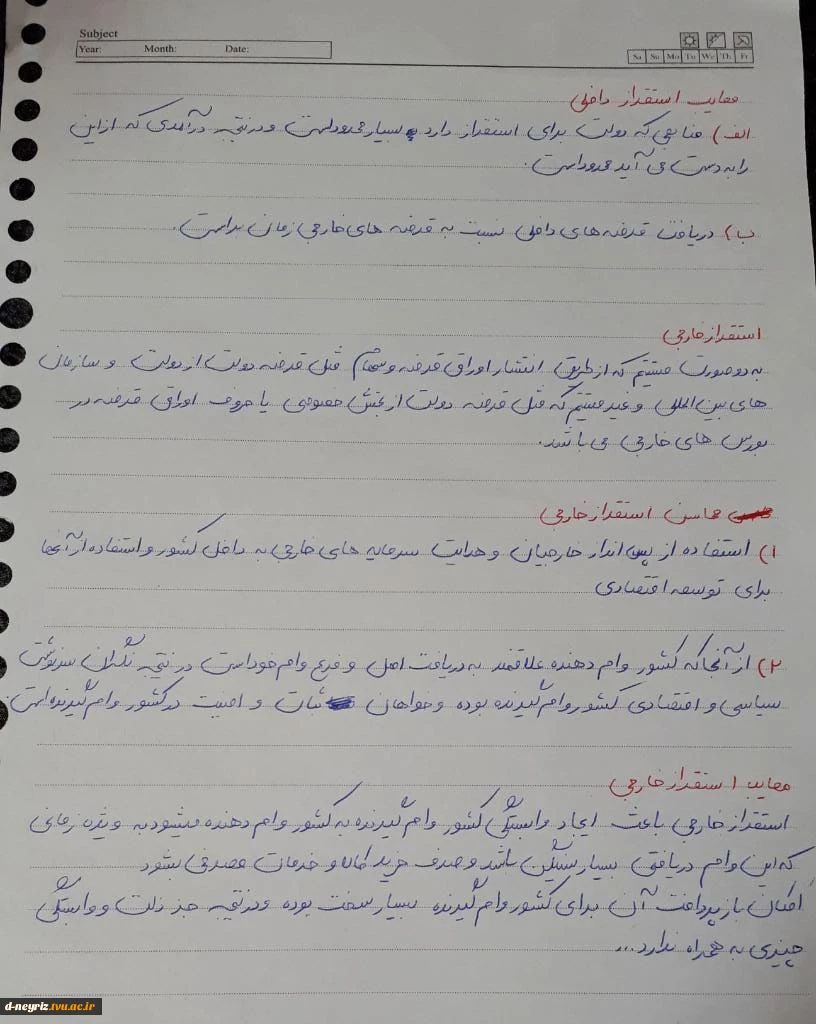 Subject
Year: Month: Date:
Sa Su Mo Tu We Th Fr
معایب استقراض داخلی
الف) منابعی که دولت برای استقراض دارد بسیار محدود است و در نتیجه درآمدی که از این
راه بدست می آید محدود است.
ب) دریافت قرضه های داخلی نسبت به قرضه های خارجی زمان بر است.
استقراض خارجی
به دو صورت مستقیم که از طریق انتشار اوراق قرضه و سهام مثل قرضه دولت از دولت و سازمان
های بین المللی و غیر مستقیم که مثل قرضه دولت از بخش خصوصی یا اوراق قرضه در
بورس های خارجی می باشد.
محاسن استقراض خارجی
۱) استفاده از پس انداز خارجیان و هدایت سرمایه های خارجی به داخل کشور و استفاده از آنها
برای توسعه اقتصادی
۲) از آنجا که کشور وام دهنده علاقمند به دریافت اصل و فرع وام خود است در نتیجه نگران سرنوشت
سیاسی و اقتصادی کشور وام گیرنده بوده و خواهان ثبات و امنیت در کشور وام گیرنده است.
معایب استقراض خارجی
استقراض خارجی باعث ایجاد وابستگی کشور وام گیرنده به کشور وام دهنده میشود به ویژه زمانی
که این وام دریافتی بسیار سنگین باشد و صرف خرید کالا و خدمات مصرفی بشود
امکان بازپرداخت آن برای کشور وام گیرنده بسیار سخت بوده و در نتیجه جز ذلت و وابستگی
چیزی به همراه ندارد...
d-neyriz.tvu.ac.ir